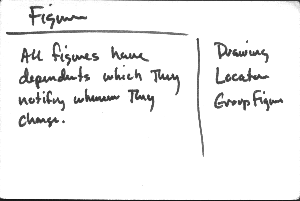 Figure
All figures have
dependents which they
notify whenever they
change.
Drawing
Locator
GroupFigure